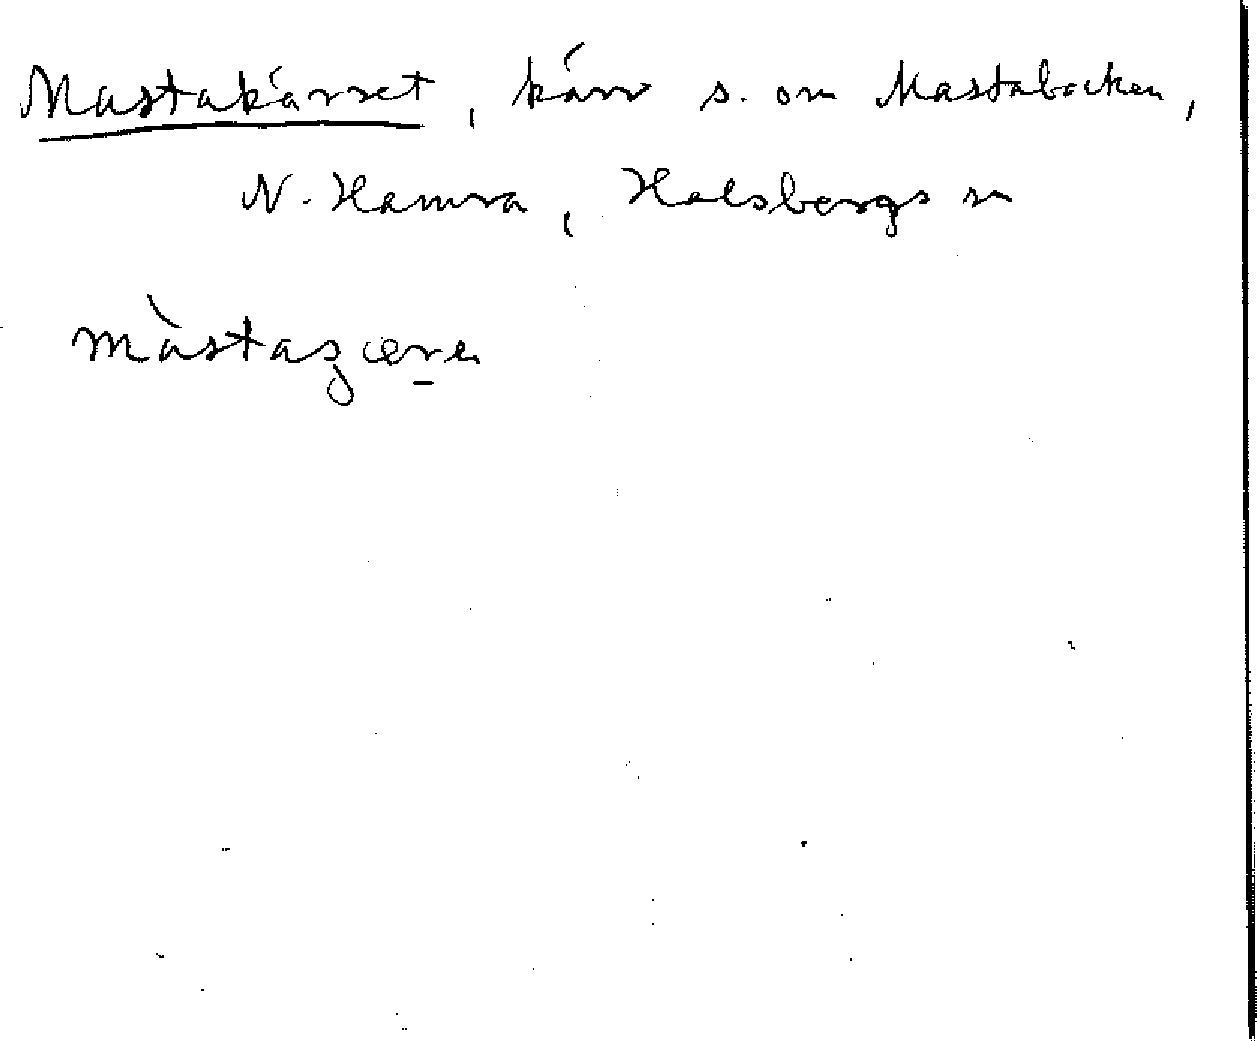 Mastakärret, kärr s. om Mastabacken,
N. Hamra, Halsbergs sn
màstaçære